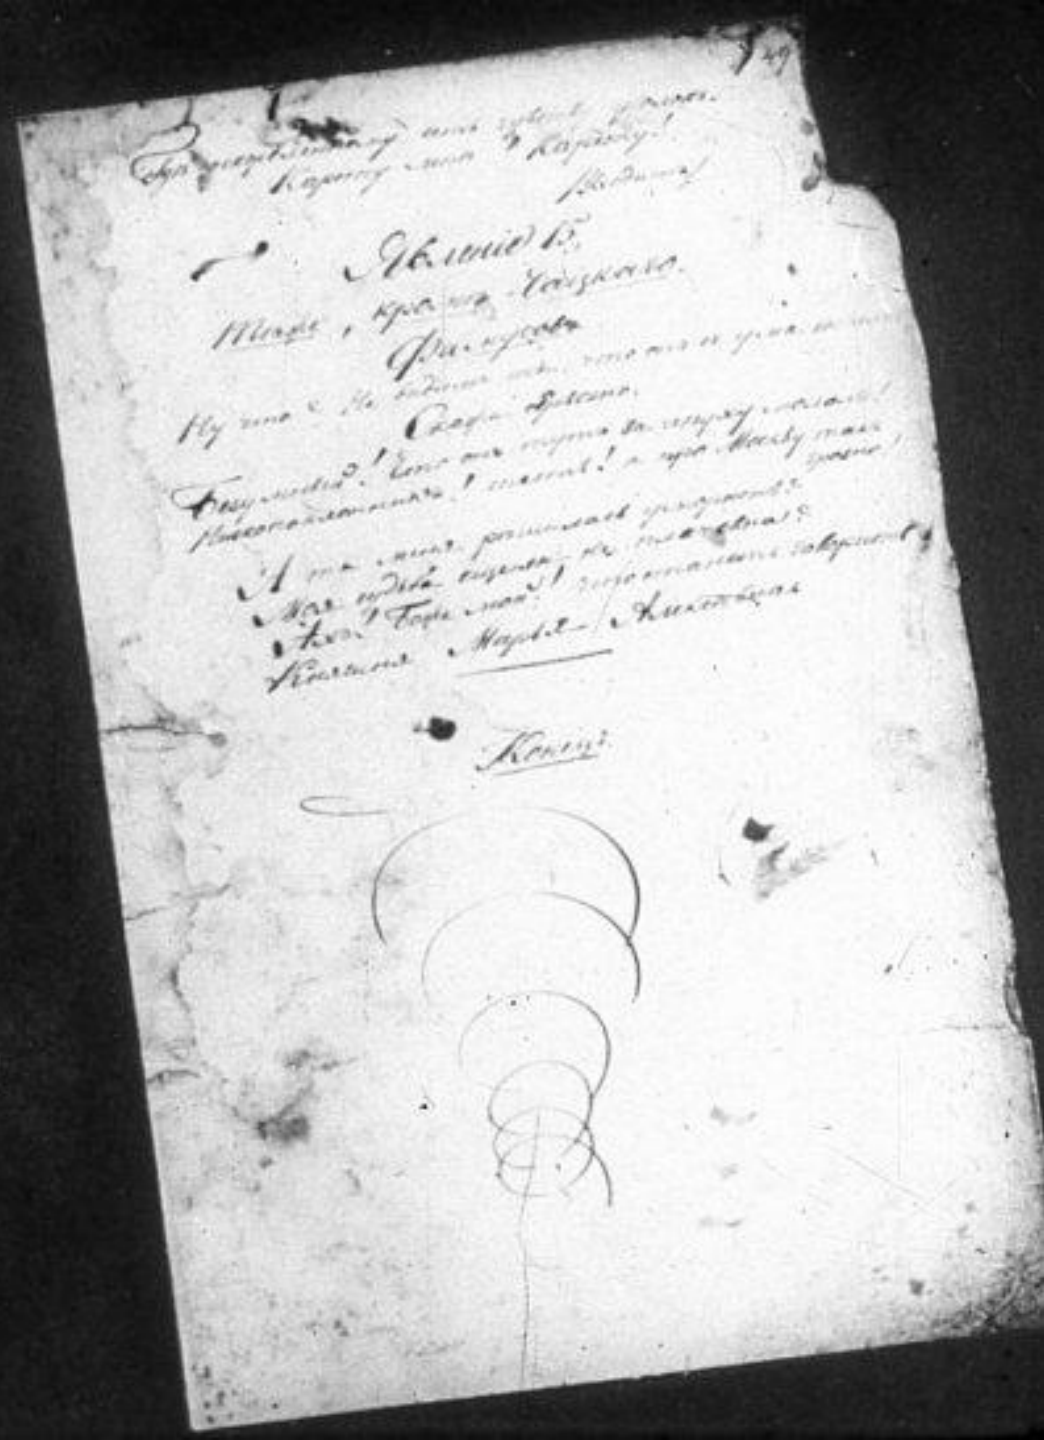 49
Гдѣ оскорбленному есть чувству уголокъ.
Карету мнѣ! Карету!
Явленіе 15.
Тѣже, кромѣ Чацкаго.
Фамусовъ
Ну что? Не видишь ты, что онъ съ ума
Скажи
Безумный! Что онъ тутъ за чепуху мололъ!
Низкопоклонникъ! тесть! и про Москву такъ
грозно!
А ты меня рѣшилась уморить?
Моя судьба еще ли не плачевна?
Ахъ! Боже мой! что станетъ говорить
Княгиня Марья Алексѣвна
Конецъ